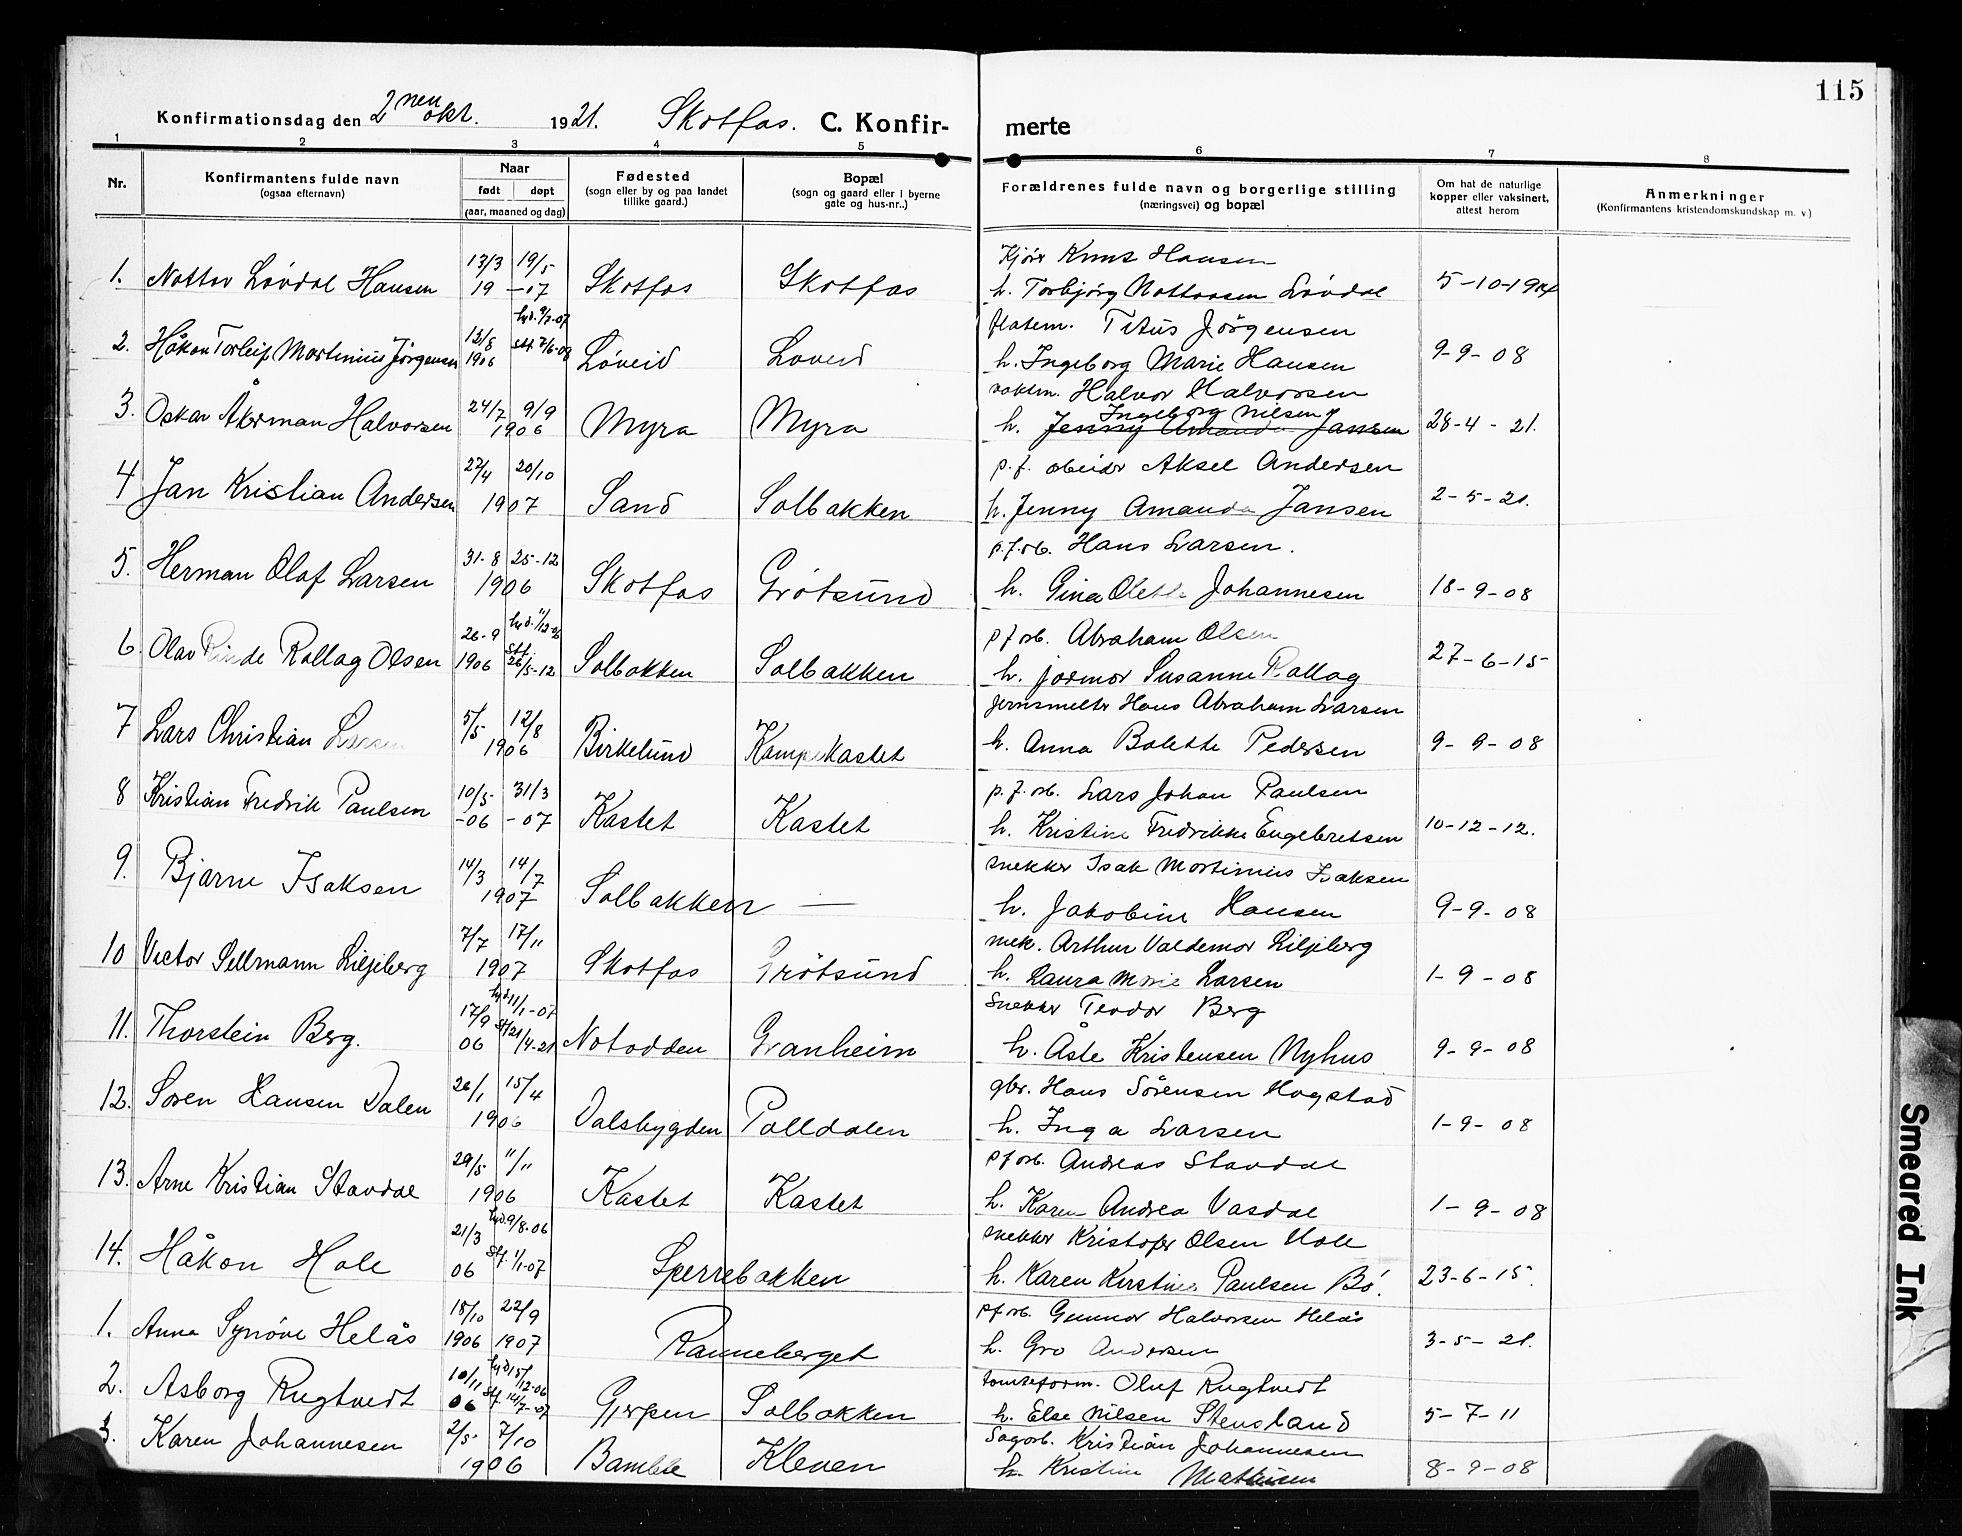 115
Konfirmationsdag den 2nen okt. 1921. Skotfos. C. Konfirmerte
1 2 3 4 5 6 7 8
Nr.
Konfirmantens fulde navn
(ogsaa efternavn)
Naar
født døpt
(aar, maaned og dag)
Fødested
(sogn eller by og paa landet
tillike gaard.)
Bopæl
(sogn og gaard eller i byerne
gate og hus-nr..)
Forældrenes fulde navn og borgerlige stilling
(næringsvei) og bopæl
Om hat de naturlige
kopper eller vaksinert,
attest herom
Anmerkninger
(Konfirmantens kristendomskundskap m. v)
1. Nottov Løvdal Hansen 13/3 19/5 19 -07 Skotfos Skotfos Hansen
h. Torbjørg Løvdal 5-10-1914
2. Håkon Torleif Martinius Jørgensen 12/8 1906 hjd. 9/7-07 Stf 7/6-08 Løveid Løveid Titus Jörgensen
h. Ingeborg Marie Hansen 9-9-08
3. Oskar Åkerman Halvorsen 24/7 9/9 1906 Myra Myra vaktm. Halvor Halvorsen
Ingeborg Nilsen
h. Jenny Amanda Jansen 28-4-21.
4 Jan Kristian Andersen 22/4 20/10 1907 Sand Solbakken p.f. arbeider Aksel Andersen
h. Jenny Amanda Jansen 2-5-21.
5. Herman Olaf Larsen 31-8 25-12 1906 Skotfos Grötsund p.f.arb. Hans Larsen.
h. Gina Olette Johannesen 18-9-08
6 Olav Rinde Rollag Olsen 26-9 1906 hjd. 1/12-06 Stf. 26/5-12 Solbakken Solbakken p f arb. Abraham Olsen
h. jormor Susanne Rollag 27-6-15
7 Lars Christian Larsen 5/5 12/8 1906 Birkelund Kampekastet Jernsmelter Hans Abraham Larsen
h. Anna Bolette Pedersen 9-9-08
8 Kristian Fredrik Paulsen 10/5 31/3 -06 -07 Kastet Kastet p.f.arb. Lars Johan Paulsen
h. Kristine Fredrikke Engebretsen 10-12-12.
9. Bjarne Isaksen 14/3 14/7 1907 Solbakken — snekker Isak Martinius Isaksen
h. Jakobine Hansen 9-9-08
10 Victor Sellmann Liljeberg 7/7 17/11 1907 Skotfos Grötsund mek. Arthur Valdemar Liljeberg
h. Laura Marie Larsen 1-9-08
11. Thorstein Berg. 17/9 06 hjd 11/1-07 Stf 21/4-21 Notodden Granheim Snekker Teodor Berg
h. Åste Kristensen Nyhus 9-9-08
12. Søren Hansen Dalen 26/1 15/4 1906 Valebygden Polldalen gbr. Hans Sörensen Hogstad
h. Inga Larsen 1-9-08
13. Arne Kristian Stavdal 29/5 11/11 1906 Kastet Kastet p f arb. Andreas Stavdal
h. Karen Andrea Vasdal 1-9-08
14. Håkon Hole 21/3 06 hjd. 9/8-06 Stf. 1/1-07 Sperrebakken snekker Kristofer Olsen Hole
h. Karen Kirstine Paulsen Bö. 23-6-15.
1. Anna Synöve Helås 18/10 22/9 1906 1907 Ranneberget p f arb. Gunnar Halvorsen Helås
h. Gro Andersen 3-5-21.
2. Asborg Rugtvedt 10/11 06 hjd 15/12-06 Stf. 14/7-07 Gjerpen Solbakken tomteform. Oluf Rugtvedt
h. Else Nilsen Stensland 5-7-11
3. Karen Johannesen 2/5 7/10 1906 Bamble Kleven Sagarb. Kristian Johannesen
h. Kristine Mathisen 8-9-08
Smeared Ink